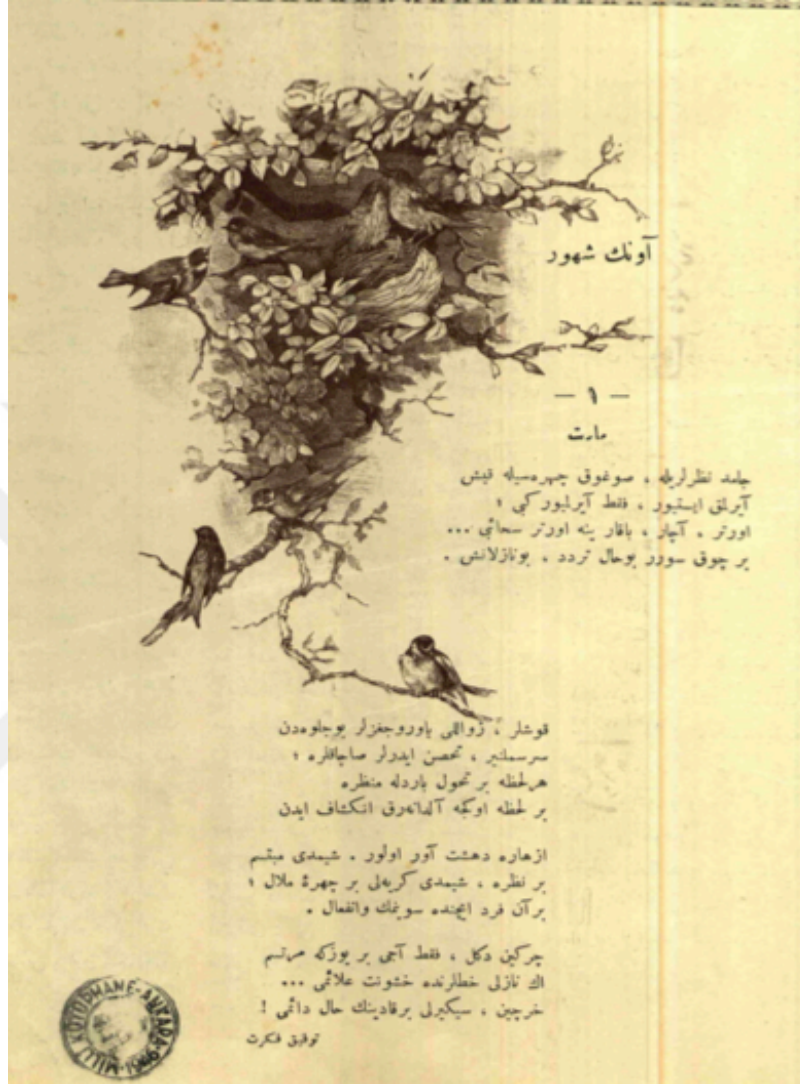 آونك شهور
— ١ —
مارت
جامد نظرلريله ، صوغوق چهره‌سيله قيش
آيرلق ايستيور ، فقط آيرلميور كبى ؛
اورتر ، آچار ، باقار ينه اورتر سحائبى ...
بر چوق سورر بوحال تردد ، بونازلانش .
قوشلر ، زواللى ياوروجغزلر بوجلوه‌دن
سرسملنير ، تحصن ايدرلر صاچاقلره ؛
هرلحظه بر تحول بارد‌له منظره
بر لحظه اوكجه آلدانه‌رق انكشاف ايدن
ازهاره دهشت آور اولور . شيمدى مبتسم
بر نظره ، شيمدى كريه‌لى بر چهرۀ ملال ؛
برآن فرد ايچنده سوينمك وانفعال .
چركين دكل ، فقط آجى بر يوزكه مرتسم
اك نازلى خطلرنده خشونت علائمى ...
خرچين ، سيكيرلى برقادينك حال دائمى !
توفيق فكرت
MİLLİ KÜTÜPHANE - ANKARA